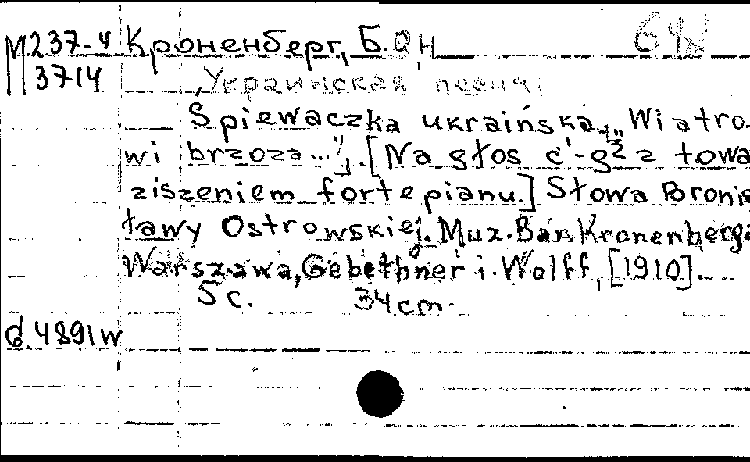 М 237-4 Кроненберг, Б.
3714 Украинская песня.
Spiewaczka ukraińska „Wiatro-
wi brzoza..."]. [Na głos c'-g² z towa-
ziszeniem fortepianu.] Słowa Bronis-
ławy Ostrowskiej. Muz. Bar. Kronenberga
Warszawa, Gebethner i Wolff, [1910].
5 с. 34 cm.
d. 4891w